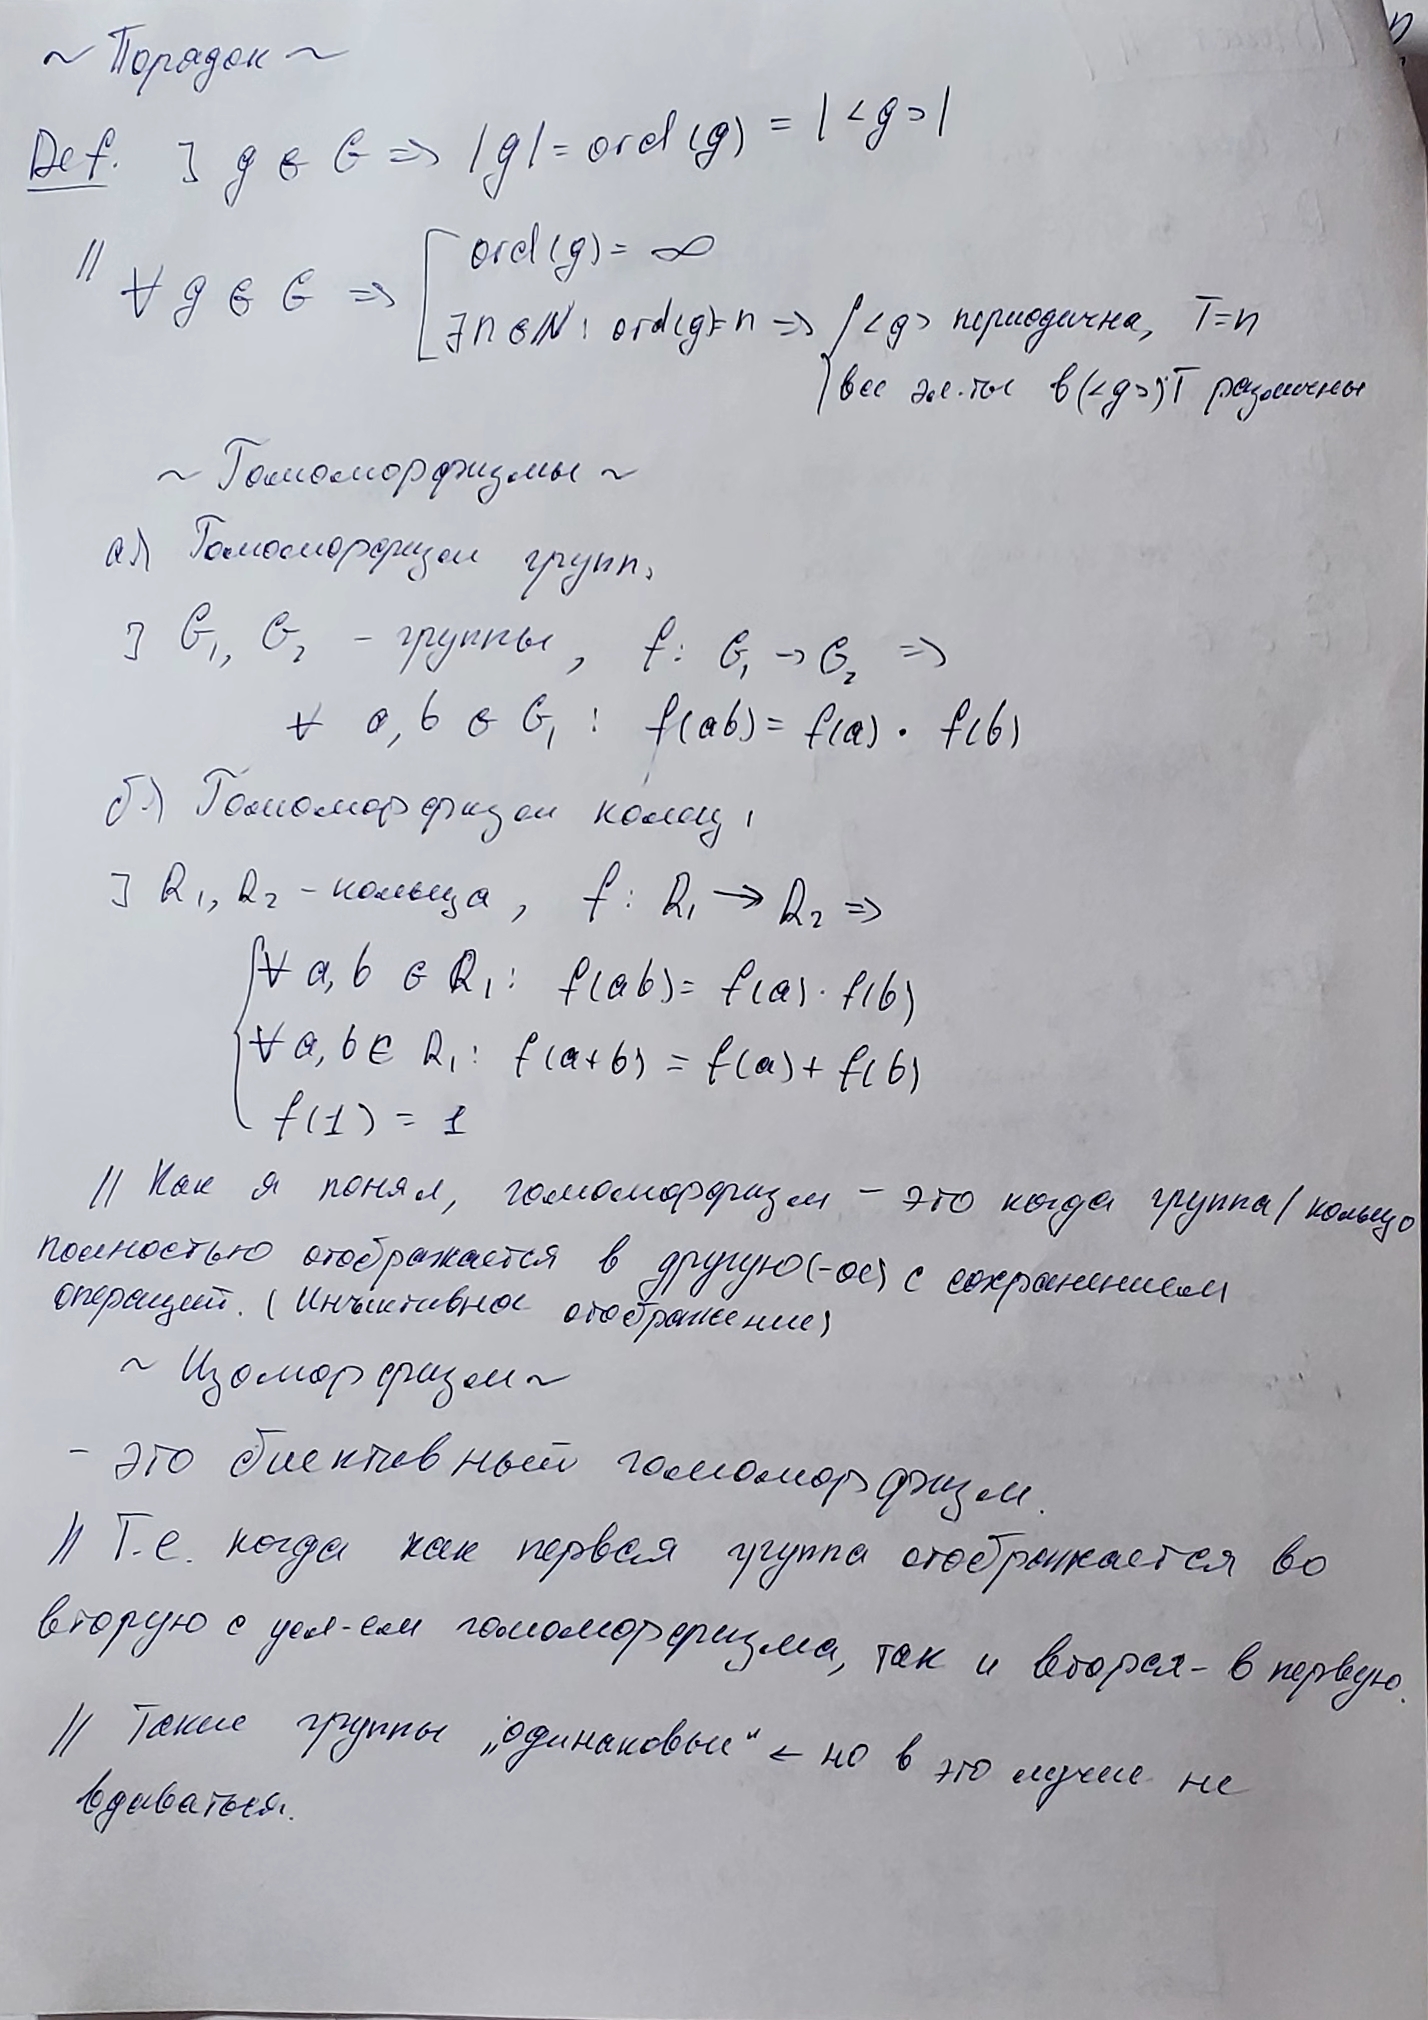 ~ Порядок ~
Def. ] g ∈ G => |g| = ord(g) = |<g>|
// ∀ g ∈ G => [ ord(g) = ∞
∃ n ∈ N: ord(g) = n => { <g> периодична, T=n
все эл-ты в (<g>) T различны
~ Гомоморфизмы ~
а) Гомоморфизм групп.
] G₁, G₂ - группы, f: G₁ → G₂ =>
∀ a, b ∈ G₁: f(ab) = f(a) · f(b)
б) Гомоморфизм колец:
] R₁, R₂ - кольца, f: R₁ → R₂ =>
{ ∀ a, b ∈ R₁: f(ab) = f(a) · f(b)
∀ a, b ∈ R₁: f(a+b) = f(a) + f(b)
f(1) = 1
// Как я понял, гомоморфизм - это когда группа/кольцо
полностью отображается в другую(-ое) с сохранением
операций. (Инъективное отображение)
~ Изоморфизм ~
- это биективный гомоморфизм.
// Т.е. когда как первая группа отображается во
вторую с усл-ем гомоморфизма, так и вторая - в первую.
// Такие группы „одинаковые“ ← но в это лучше не
вдаваться.